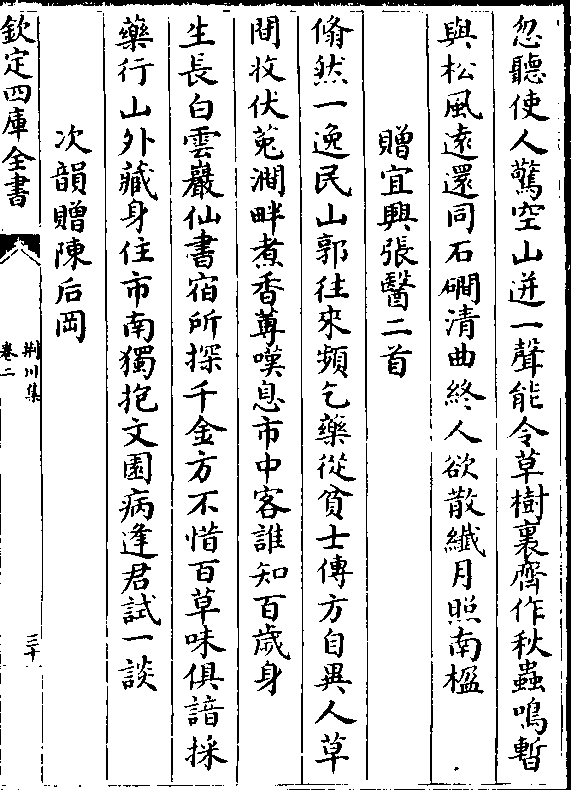 忽聽使人驚空山迸一聲能令草樹裏齊作秋蟲鳴暫
與松風遠還同石磵清曲終人欲散纖月照南楹
贈宜興張醫二首
翛然一逸民山郭往來頻乞藥從貧士傳方自異人草
間收伏菟澗畔煮香蓴嘆息市中客誰知百歲身
生長白雲巖仙書宿所探千金方不惜百草味俱諳採
藥行山外藏身住市南獨抱文園病逢君試一談
次韻贈陳后岡
欽定四庫全書
荆川集
卷二
三十